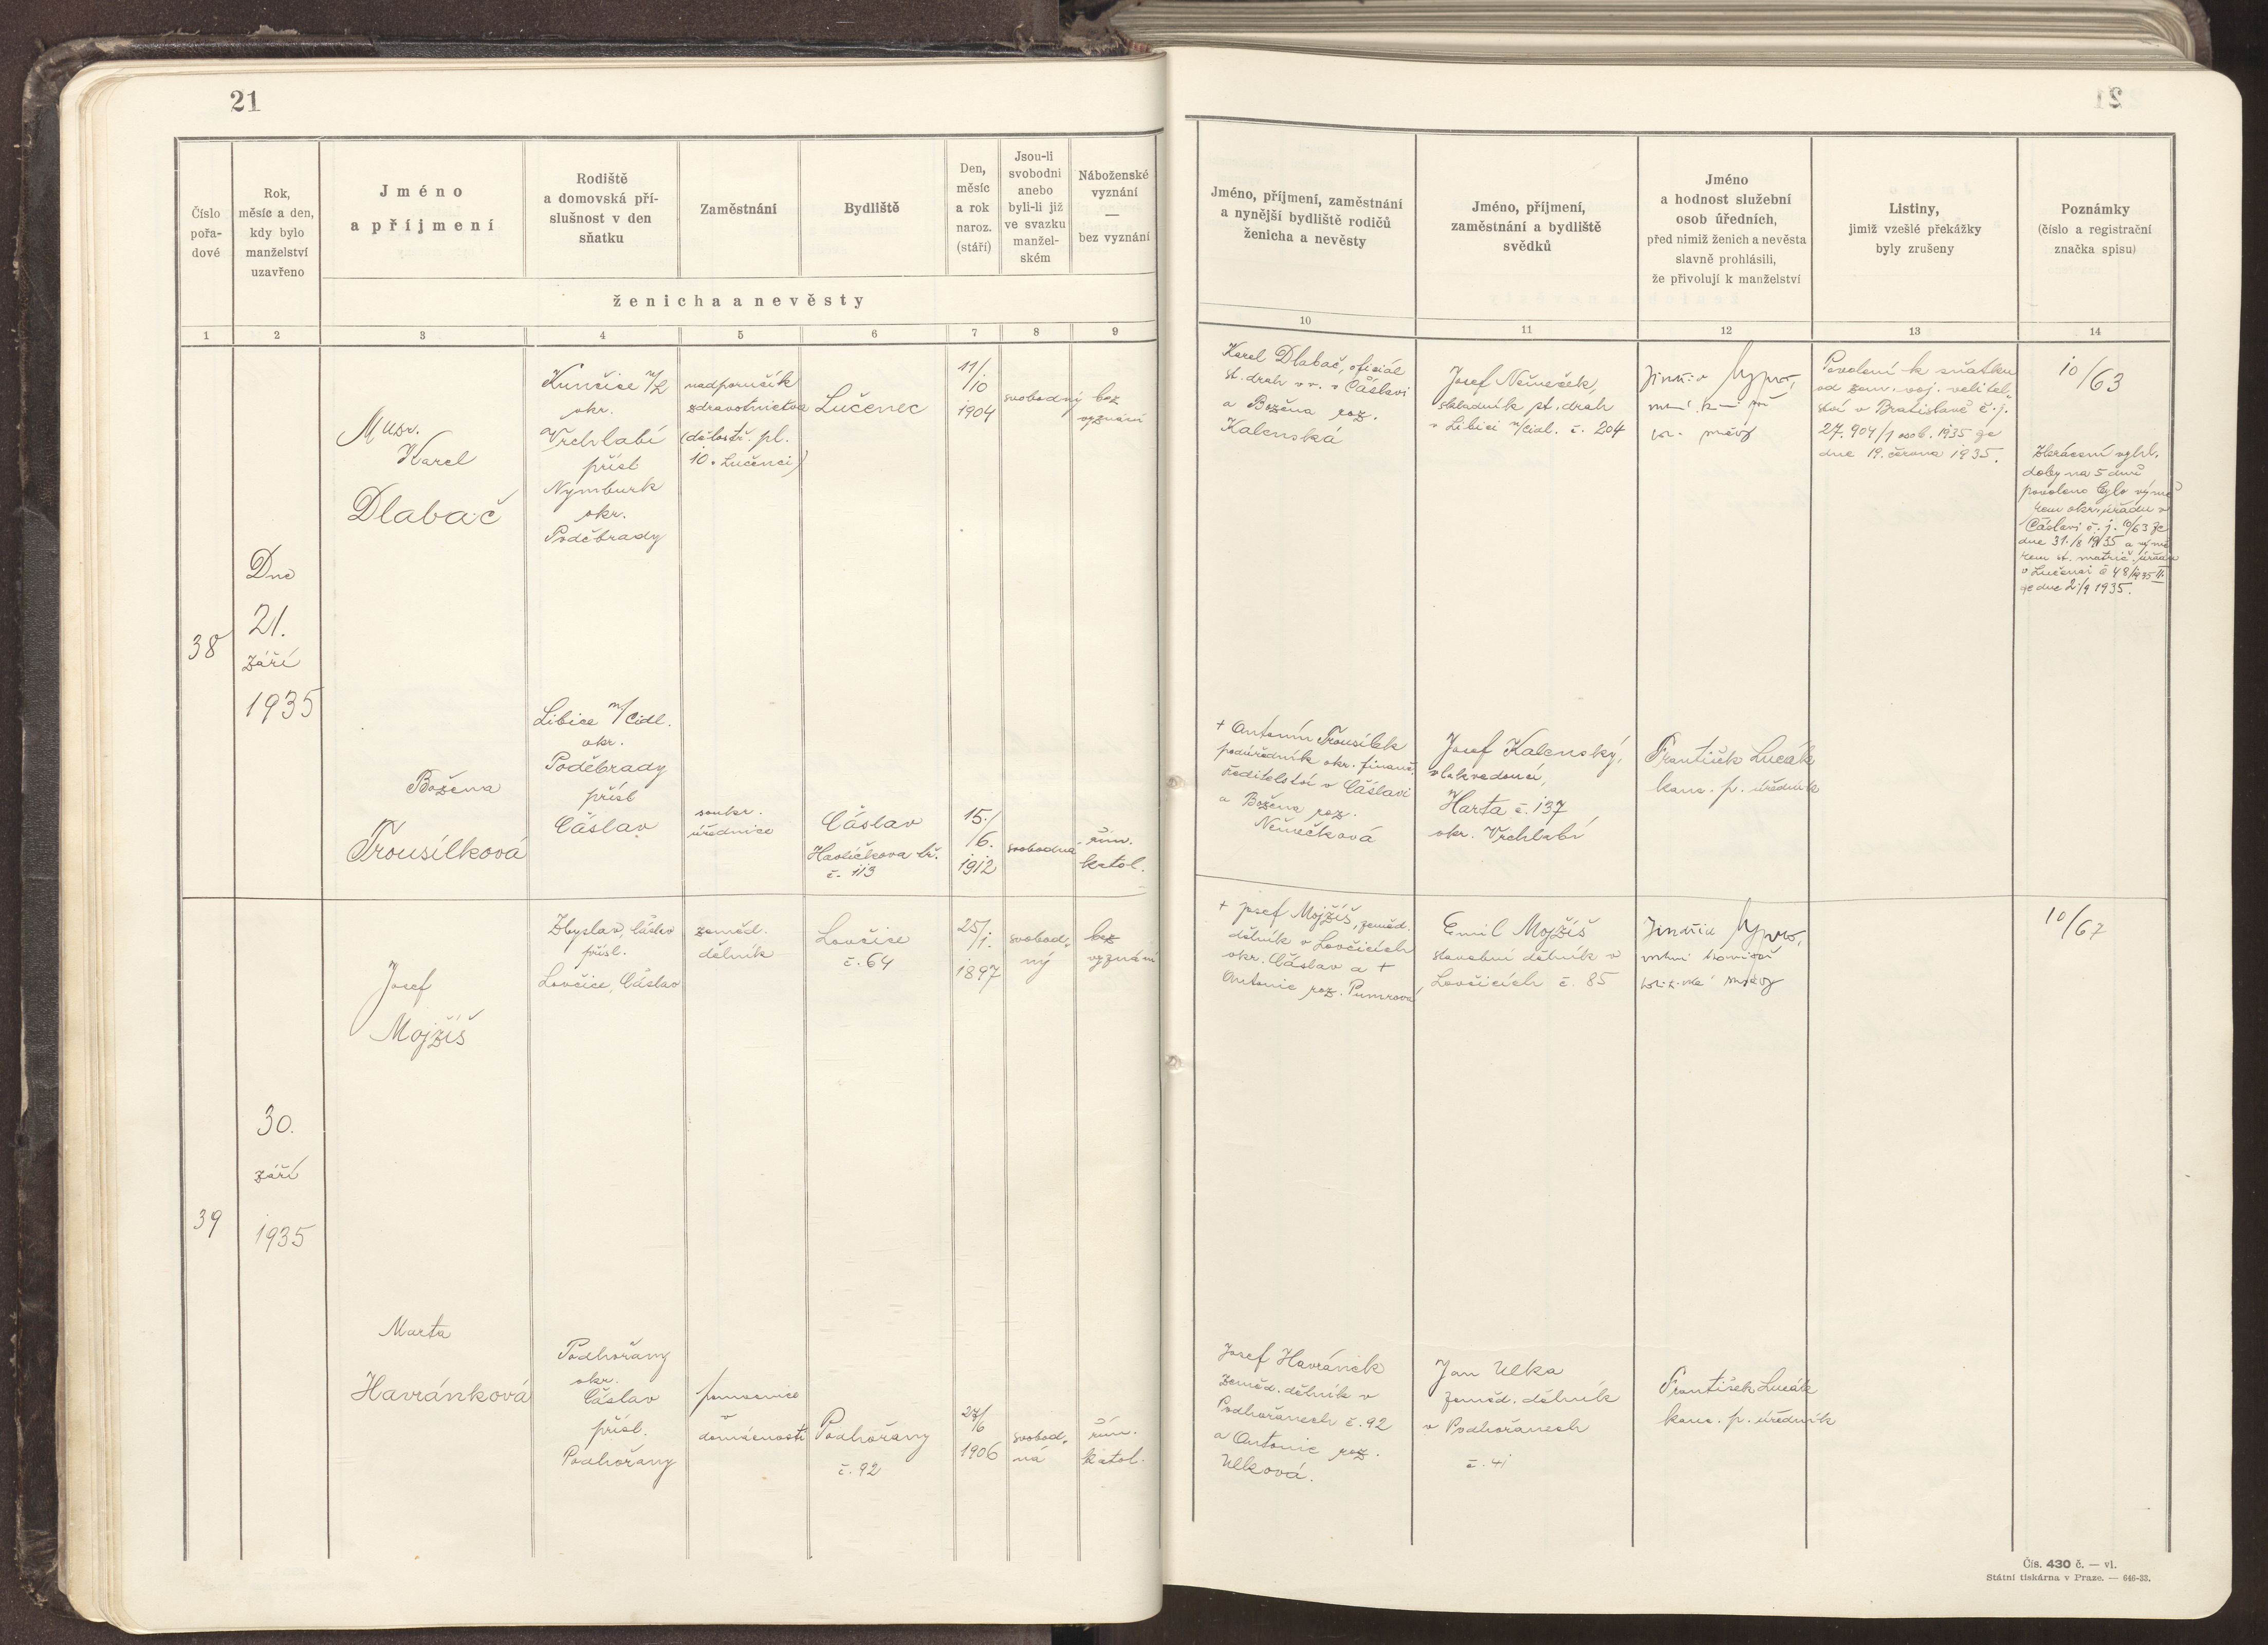 21
Číslo
pořa-
dové
Rok,
měsíc a den,
kdy bylo
manželství
uzavřeno
Jméno
a příjmení
Rodiště
a domovská pří-
slušnost v den
sňatku
Zaměstnání
Bydliště
Den,
měsíc
a rok
naroz.
(stáří)
Jsou-li
svobodni
anebo
byli-li již
ve svazku
manžel-
ském
Náboženské
vyznání
—
bez vyznání
ženicha a nevěsty
1 2 3 4 5 6 7 8 9
38
Dne
21.
září
1935
MUDr.
Karel
Dlabač
Kunčice n/L
okr.
Vrchlabí
přísl
Nymburk
okr.
Poděbrady
nadporučík
zdravotnictva
(dělostř. pl.
10 v Lučenci)
Lučenec
11/
/10
1904
svobodný
bez
vyznání
Božena
Trousílková
Libice n/Cidl.
okr.
Poděbrady
přísl
Čáslav
soukr.
úřednice
Čáslav
Havlíčkova tř.
č. 113
15./
/6.
1912
svobodna
řím.
katol.
39
30.
září
1935
Josef
Mojžíš
Zbyslav, Čáslav
přísl.
Lovčice, Čáslav
zeměd.
dělník
Lovčice
č. 64
25/
/1.
1897
svobod-
ný
bez
vyznání
Marta
Havránková
Podhořany
okr.
Čáslav
přísl.
Podhořany
pomocnice
v
domácnosti
Podhořany
č. 92
27/
/6
1906
svobod-
ná
řím.
katol.
21
Jméno, příjmení, zaměstnání
a nynější bydliště rodičů
ženicha a nevěsty
Jméno, příjmení,
zaměstnání a bydliště
svědků
Jméno
a hodnost služební
osob úředních,
před nimiž ženich a nevěsta
slavně prohlásili,
že přivolují k manželství
Listiny,
jimiž vzešlé překážky
byly zrušeny
Poznámky
(číslo a registrační
značka spisu)
10 11 12 13 14
Karel Dlabač, oficiál
st. drah v v. v Čáslavi
a Božena roz.
Kalenská
Josef Němeček,
skladník st. drah
v Libici n/Cidl. č. 204
Povolení k sňatku
od zem. voj. velitel-
ství v Bratislavě č. j.
27.904/1 osob. 1935 ze
dne 19. června 1935.
10/63
Zkrácení vyhl.
doby na 5 dnů
povoleno bylo výmě
rem okr. úřadu v
Čáslavi č. j. 10/63 ze
dne 31./8 1935 a výmě
rem st. matrič. úřadu
v Lučenci č 48/1935 II.
ze dne 2./9 1935.
+ Antonín Trousílek
podúředník okr. finanč.
ředitelství v Čáslavi
a Božena roz.
Němečková
Josef Kalenský,
vlakvedoucí,
Harta č. 137
okr. Vrchlabí
František Lucák
kanc. p. úředník
+ Josef Mojžíš, zeměd.
dělník v Lovčicích
okr. Čáslav a +
Antonie roz. Pumrová
Emil Mojžíš
stavební dělník v
Lovčicích č. 85
Jindřich
vrchní
správy
10/67
Josef Havránek
zeměd. dělník v
Podhořanech č. 92
a Antonie roz.
Ulková.
Jan Ulka
zeměd. dělník
v Podhořanech
č. 41
František Lucák
kanc. p. úředník
Čís. 430 č. — vl.
Státní tiskárna v Praze. — 646-33.